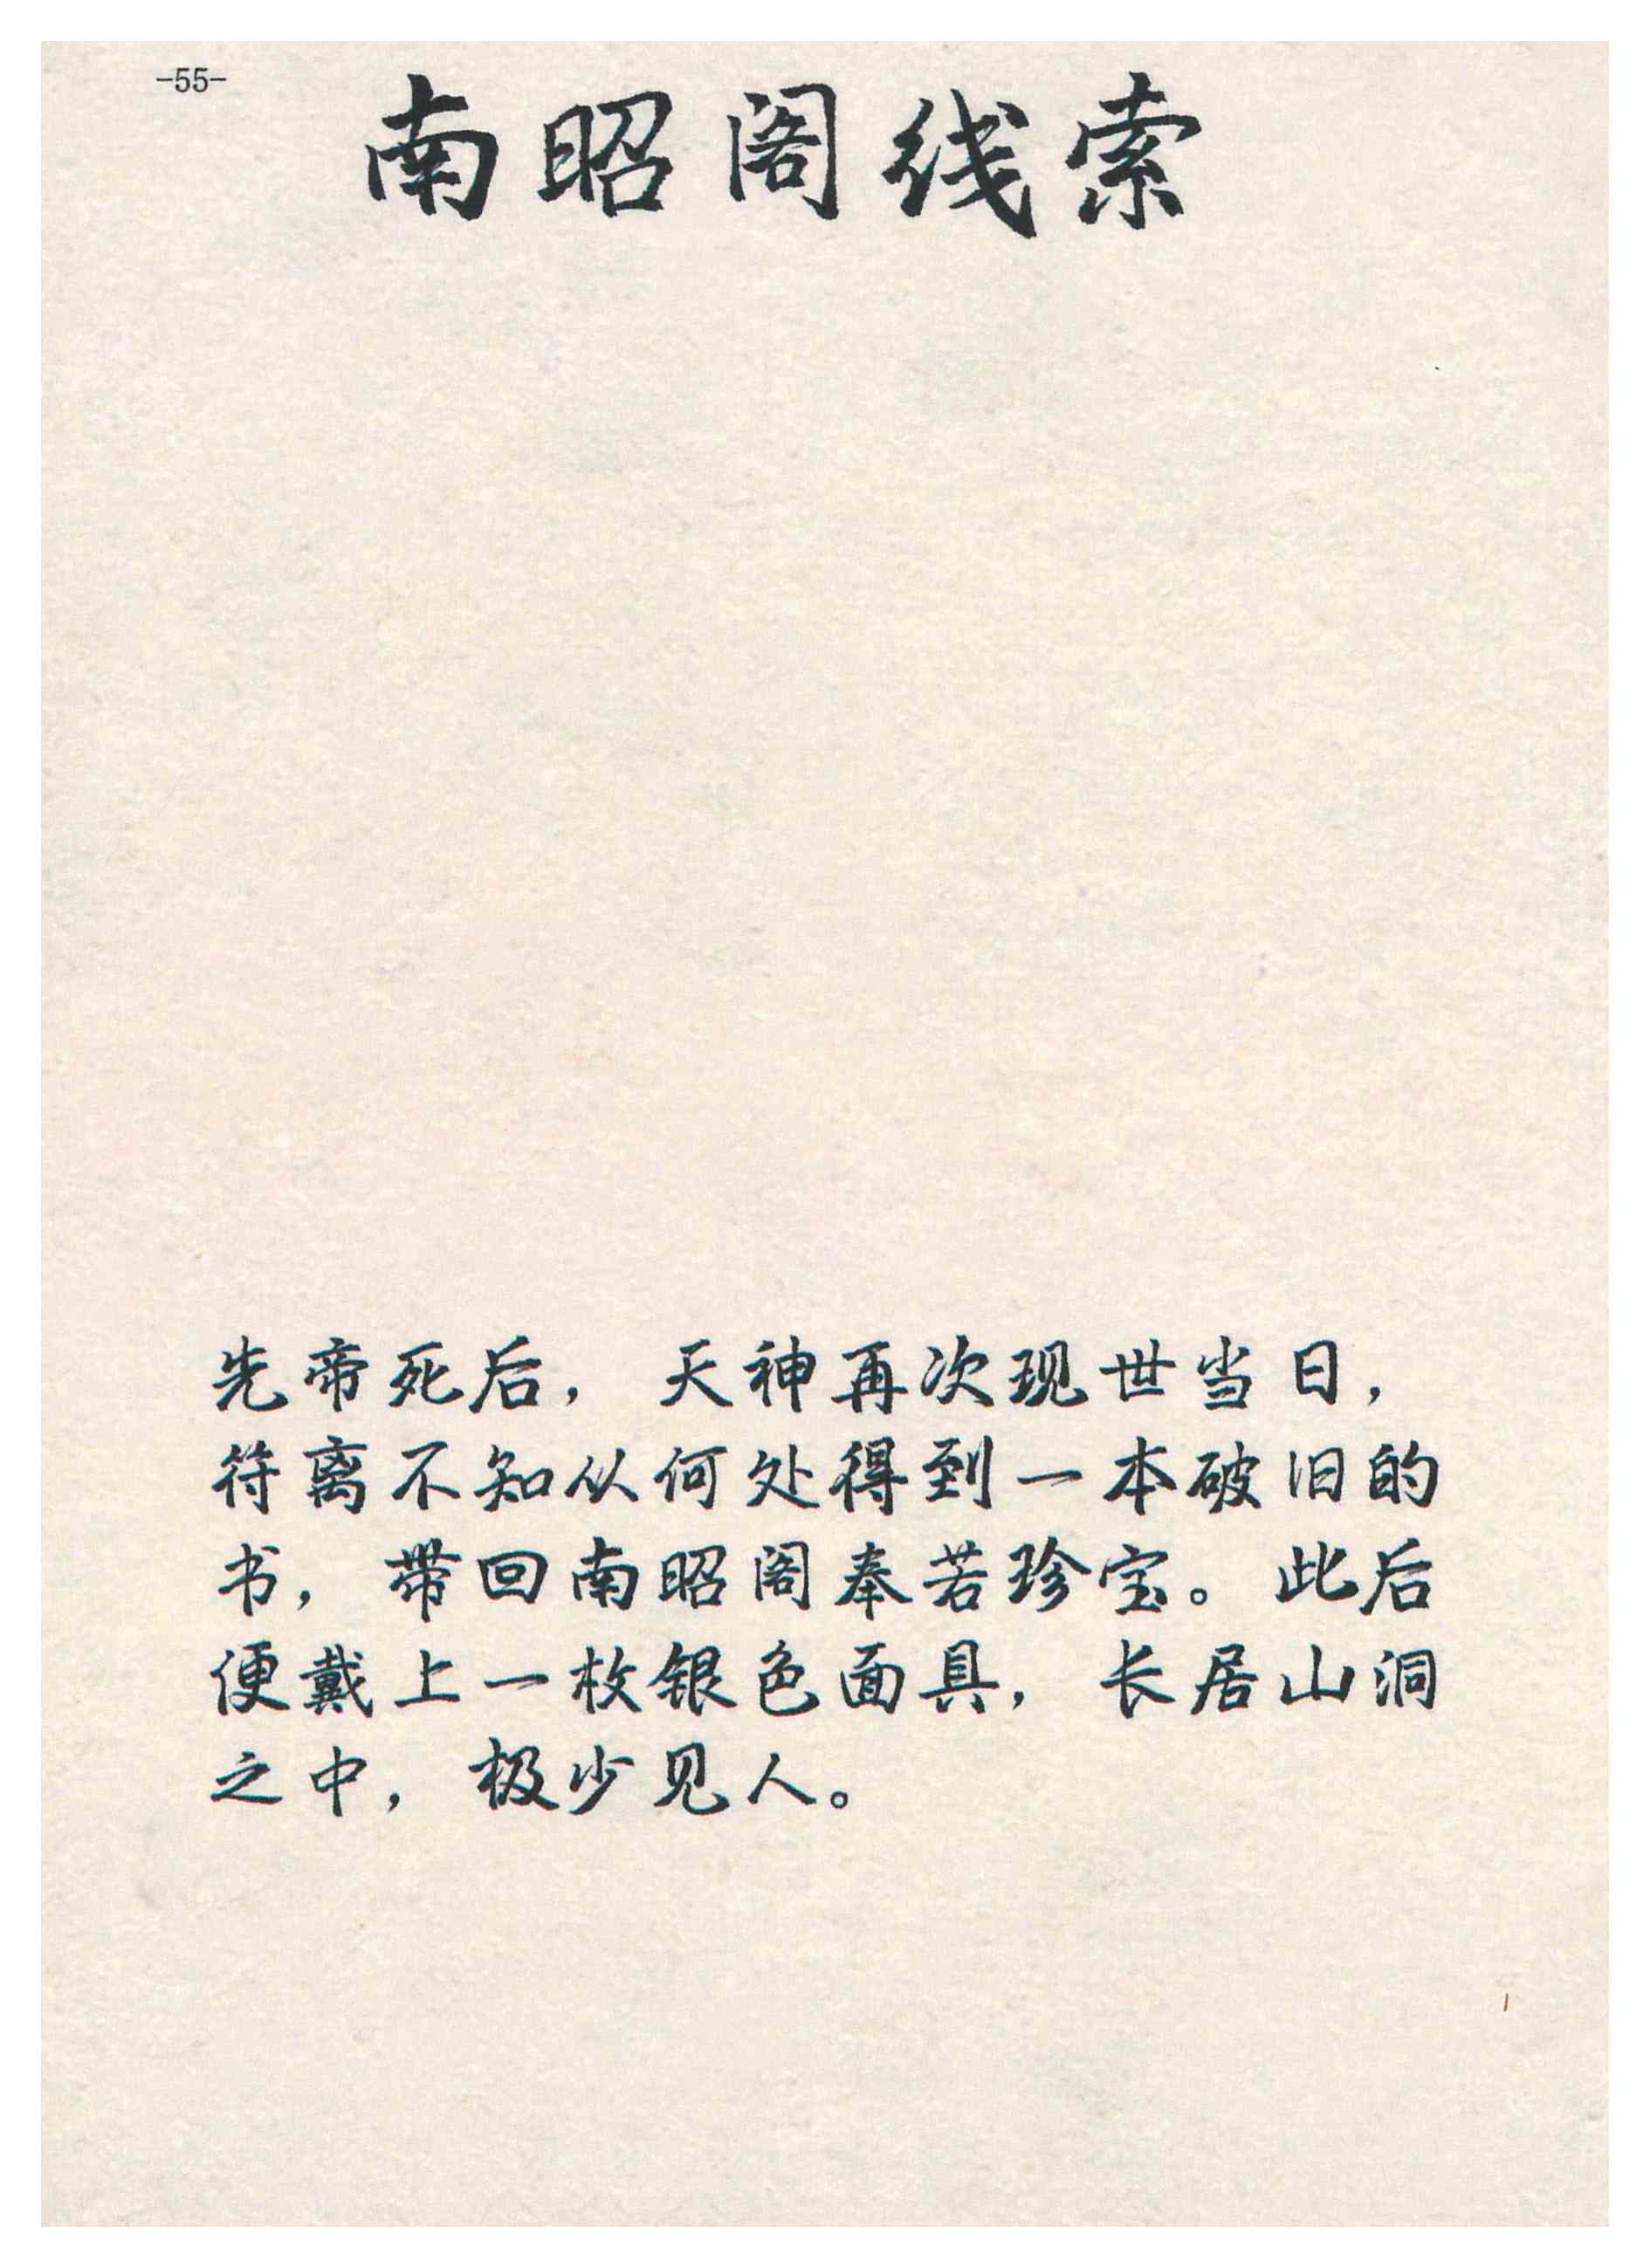 -55-
南昭阁线索
先帝死后，天神再次现世当日，
符离不知从何处得到一本破旧的
书，带回南昭阁奉若珍宝。此后
便戴上一枚银色面具，长居山洞
之中，极少见人。